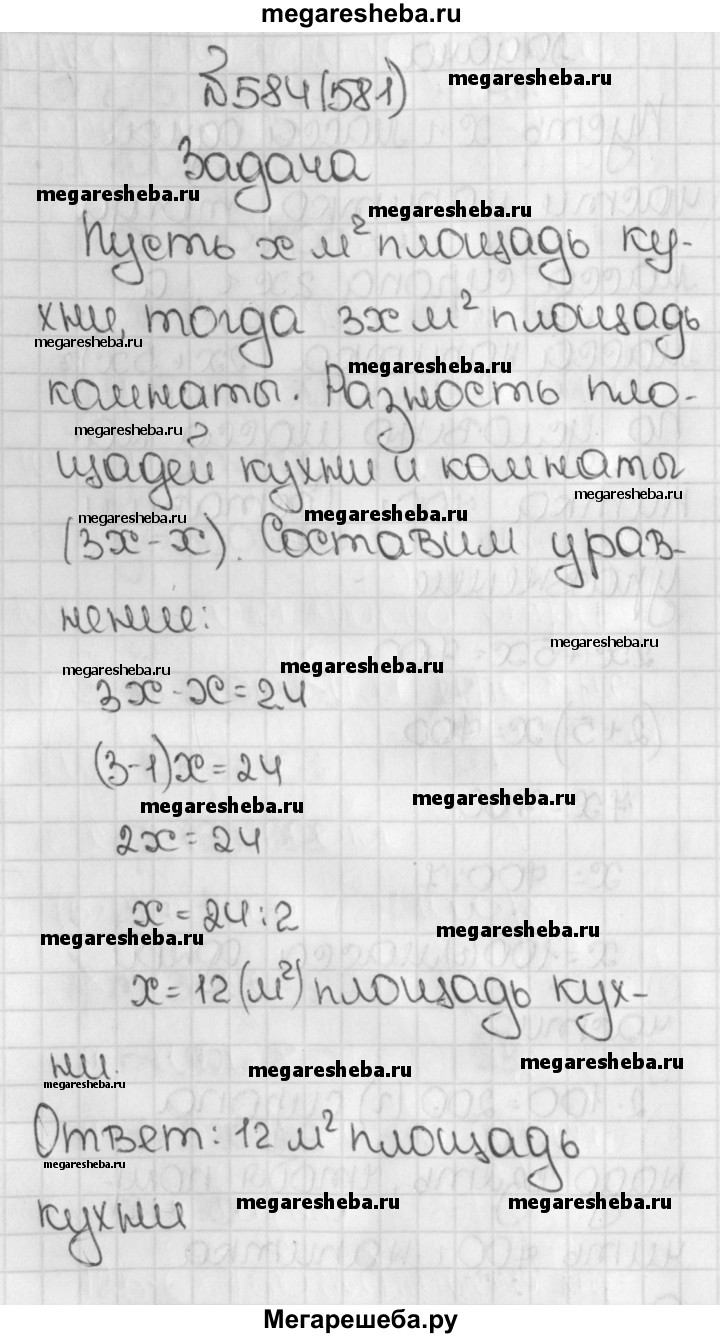 megaresheba.ru
№584(581)
megaresheba.ru
Задача
megaresheba.ru
megaresheba.ru
Пусть x м² площадь ку-
хни, тогда 3x м² площадь
megaresheba.ru
megaresheba.ru
комнаты. Разность пло-
megaresheba.ru
щадей кухни и комнаты
megaresheba.ru
megaresheba.ru
megaresheba.ru
(3x-x). Составим урав-
нение:
megaresheba.ru
megaresheba.ru
megaresheba.ru
3x-x=24
(3-1)x=24
megaresheba.ru
megaresheba.ru
2x=24
x=24:2
megaresheba.ru
megaresheba.ru
x=12(м²) площадь кух-
ни.
megaresheba.ru
megaresheba.ru
megaresheba.ru
Ответ: 12 м² площадь
megaresheba.ru
кухни
megaresheba.ru
megaresheba.ru
Мегарешеба.ру